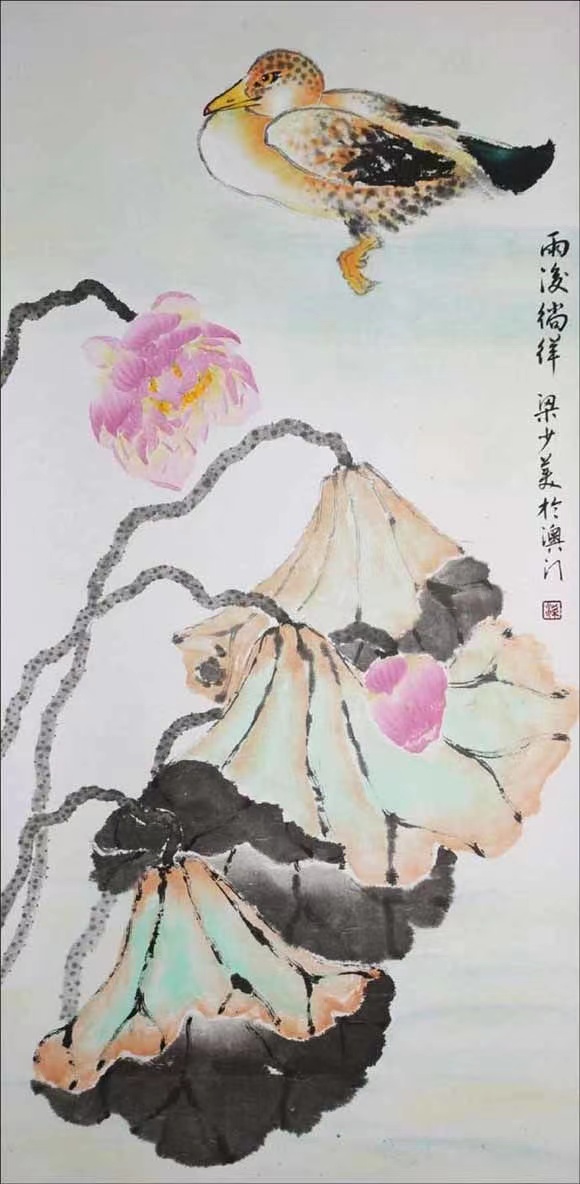 雨後徜徉 梁少美於澳门